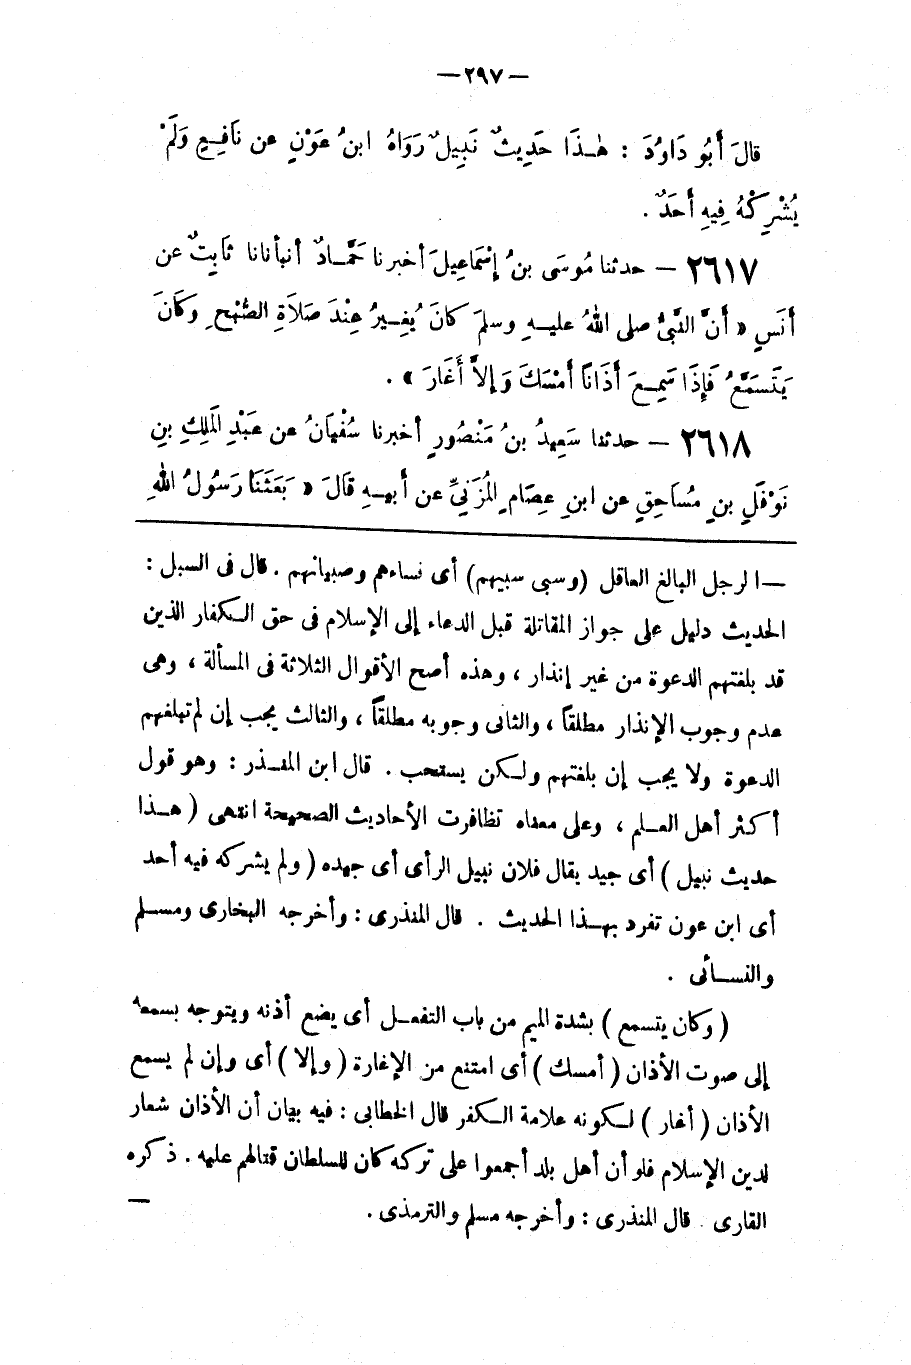 — ٢٩٧ —
قالَ أَبُو دَاوُدَ : هٰـذَا حَدِيثٌ نَبِيلٌ رَوَاهُ ابنُ عَوْنٍ عن نَافِعٍ وَلَمْ
يُشْرِكْهُ فِيهِ أَحَدٌ .
٢٦١٧ — حدثنا مُوسَى بنُ إِسْمَاعِيلَ أخبرنا حَمَّـادٌ أنبأنانا ثَابِتٌ عن
أَنَسٍ « أَنَّ النَّبِيَّ صلى اللهُ عليـهِ وسلمَ كانَ يُغِـيرُ عِنْدَ صَلَاةِ الصُّبْحِ وكَانَ
يَتَسَمَّعُ فَإِذَا سَمِـعَ أَذَاناً أَمْسَكَ وَإلاَّ أَغَارَ » .
٢٦١٨ — حدثنا سَعِيدُ بنُ مَنْصُورٍ أخبرنا سُفْيَانُ عن عَبْدِ المَلِكِ بنِ
نَوْفَلِ بنِ مُسَاحِقٍ عن ابنِ عِصَامٍ المُزَنِيِّ عن أبيـهِ قالَ « بَعَثَنَا رَسُولُ اللهِ
— الرجل البالغ العاقل (وسبى سبيهم) أى نساءهم وصبيانهم . قال فى السبل :
الحديث دليل على جواز المقاتلة قبل الدعاء إلى الإسلام فى حق الـكفار الذين
قد بلغتهم الدعوة من غير إنذار ، وهذه أصح الأقوال الثلاثة فى المسألة ، وهى
عدم وجوب الإنذار مطلقاً ، والثانى وجوبه مطلقاً ، والثالث يجب إن لم تبلغهم
الدعوة ولا يجب إن بلغتهم ولـكن يستحب . قال ابن المنـذر : وهو قول
أكثر أهل العـلم ، وعلى معناه تظافرت الأحاديث الصحيحة انتهى ( هـذا
حديث نبيل ) أى جيد يقال فلان نبيل الرأى أى جيده ( ولم يشركه فيه أحد
أى ابن عون تفرد بهـذا الحديث . قال المنذرى : وأخرجه البخارى ومسـلم
والنسـائى .
( وكان يتسمع ) بشدة الميم من باب التفعـل أى يضع أذنه ويتوجه بسمعه
إلى صوت الأذان ( أمسك ) أى امتنع من الإغارة ( وإلا ) أى وإن لم يسمع
الأذان ( أغار ) لـكونه علامة الـكفر قال الخطابى : فيه بيان أن الأذان شعار
لدين الإسلام فلو أن أهل بلد أجمعوا على تركه كان للسلطان قتالهم عليه . ذكره
القارى . قال المنذرى : وأخرجه مسلم والترمذى . —